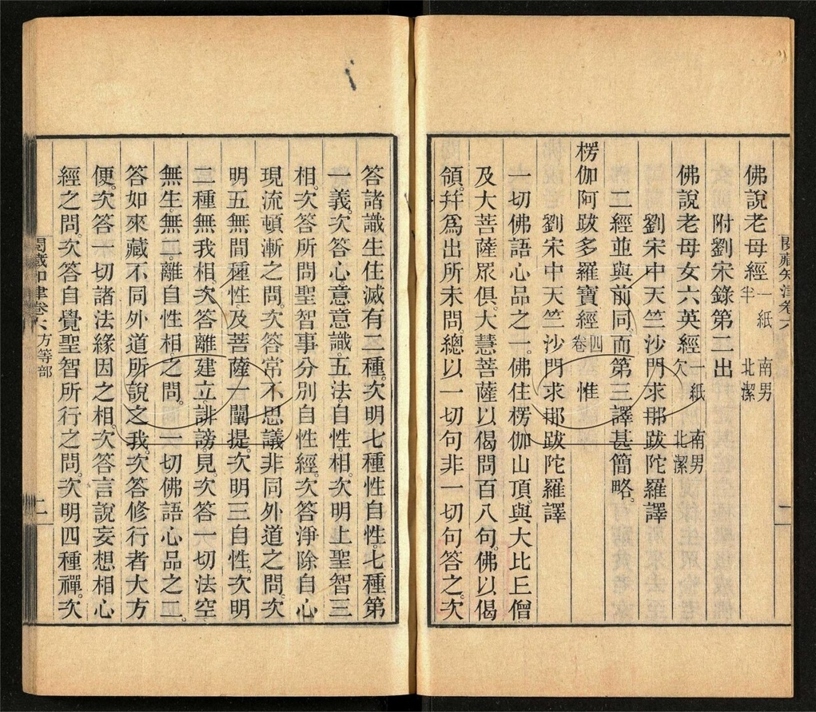 佛說老母經 半一紙 北潔南男
附劉宋錄第二出
佛說老母女六英經 欠一紙 北潔南男
劉宋中天竺沙門求那跋陀羅譯
二經並與前同。而第三譯甚簡略。
楞伽阿跋多羅寶經 四卷 惟
劉宋中天竺沙門求那跋陀羅譯
一切佛語心品之一。佛住楞伽山頂。與大比丘僧
及大菩薩眾俱。大慧菩薩以偈問百八句。佛以偈
領。幷爲出所未問。總以一切句非一切句答之。次
答諸識生住滅有二種。次明七種性自性。七種第
一義。次答心意意識。五法自性。相。次明上聖智三
相。次答所問聖智事分別自性經。次答淨除自心
現流頓漸之問。次答常不思議非同外道之問。次
明五無間種性及菩薩一闡提。次明三自性。次明
二種無我相。次答離建立誹謗見。次答一切法空
無生無二。離自性相之問。 一切佛語心品之二。
答如來藏不同外道所說之我。次答修行者大方
便。次答一切諸法緣因之相。次答言說妄想相心
經之問。次答自覺聖智所行之問。次明四種禪。次
閱藏知津卷六 方等部 二
閱藏知津卷六